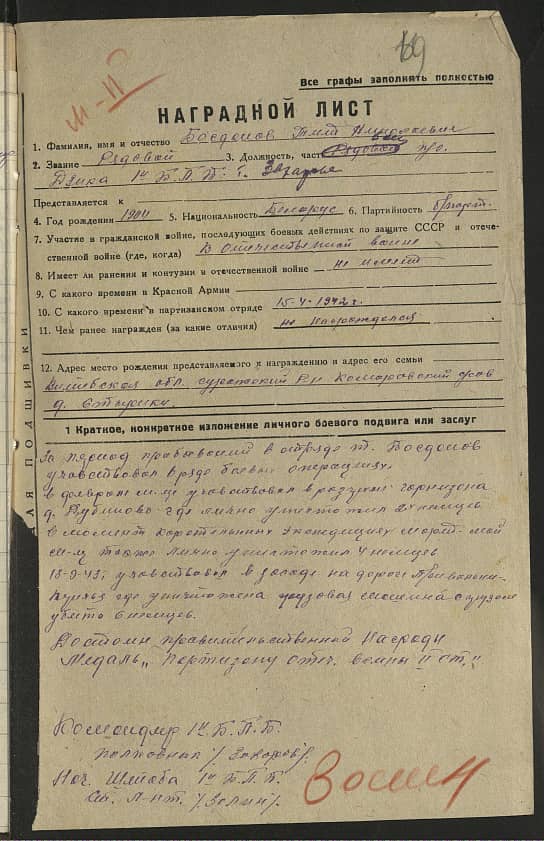 69
М-II
Все графы заполнять полностью
НАГРАДНОЙ ЛИСТ
1. Фамилия, имя и отчество Богданов Тит
2. Звание Рядовой 3. Должность, часть Рядовой п/о.
1й Б.П.Б. г. Захарова
Представляется к
4. Год рождения 5. Национальность Беларус 6. Партийность
7. Участие в гражданской войне, последующих боевых действиях по защите СССР и отече-
ственной войне (где, когда) В отечественной войне
8. Имеет ли ранения и контузии в отечественной войне не имеет
9. С какого времени в Красной Армии
10. С какого времени в партизанском отряде 15-4-1942г.
11. Чем ранее награжден (за какие отличия) не награждался
12. Адрес место рождения представляемого к награждению и адрес его семьи
Витебская обл. Суражский Р-н Комаровский
д.
ДЛЯ ПОДШИВКИ
1 Краткое, конкретное изложение личного боевого подвига или заслуг
За период пребывания в отряде т. Богданов
участвовал в ряде боевых операциях.
В феврале м-це участвовал в разгроме гарнизона
д. где лично уничтожил немцев
в момент карательных экспедициях март-май
м-ц также лично уничтожил 4 немцев
18-9-43г. участвовал в засаде на дороге
где уничтожена грузовая машина с грузом
убито немцев.
Достоин правительственной Награды
Медаль „Партизану отеч. войны II ст."
Командир 1й Б.П.Б.
полковник /Захаров/.
Нач. Штаба 1й Б.П.Б.
Ст. л-нт.